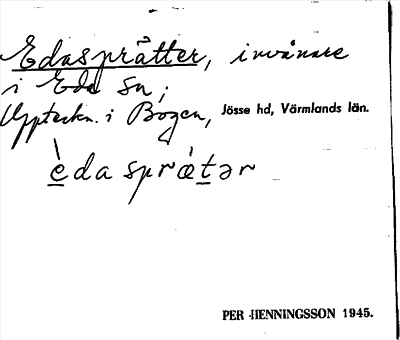 Edasprätter, invånare
i Eda sn;
Uppteckn. i Bogen, Jösse hd, Värmlands län.
èdasprætər
PER HENNINGSSON 1945.